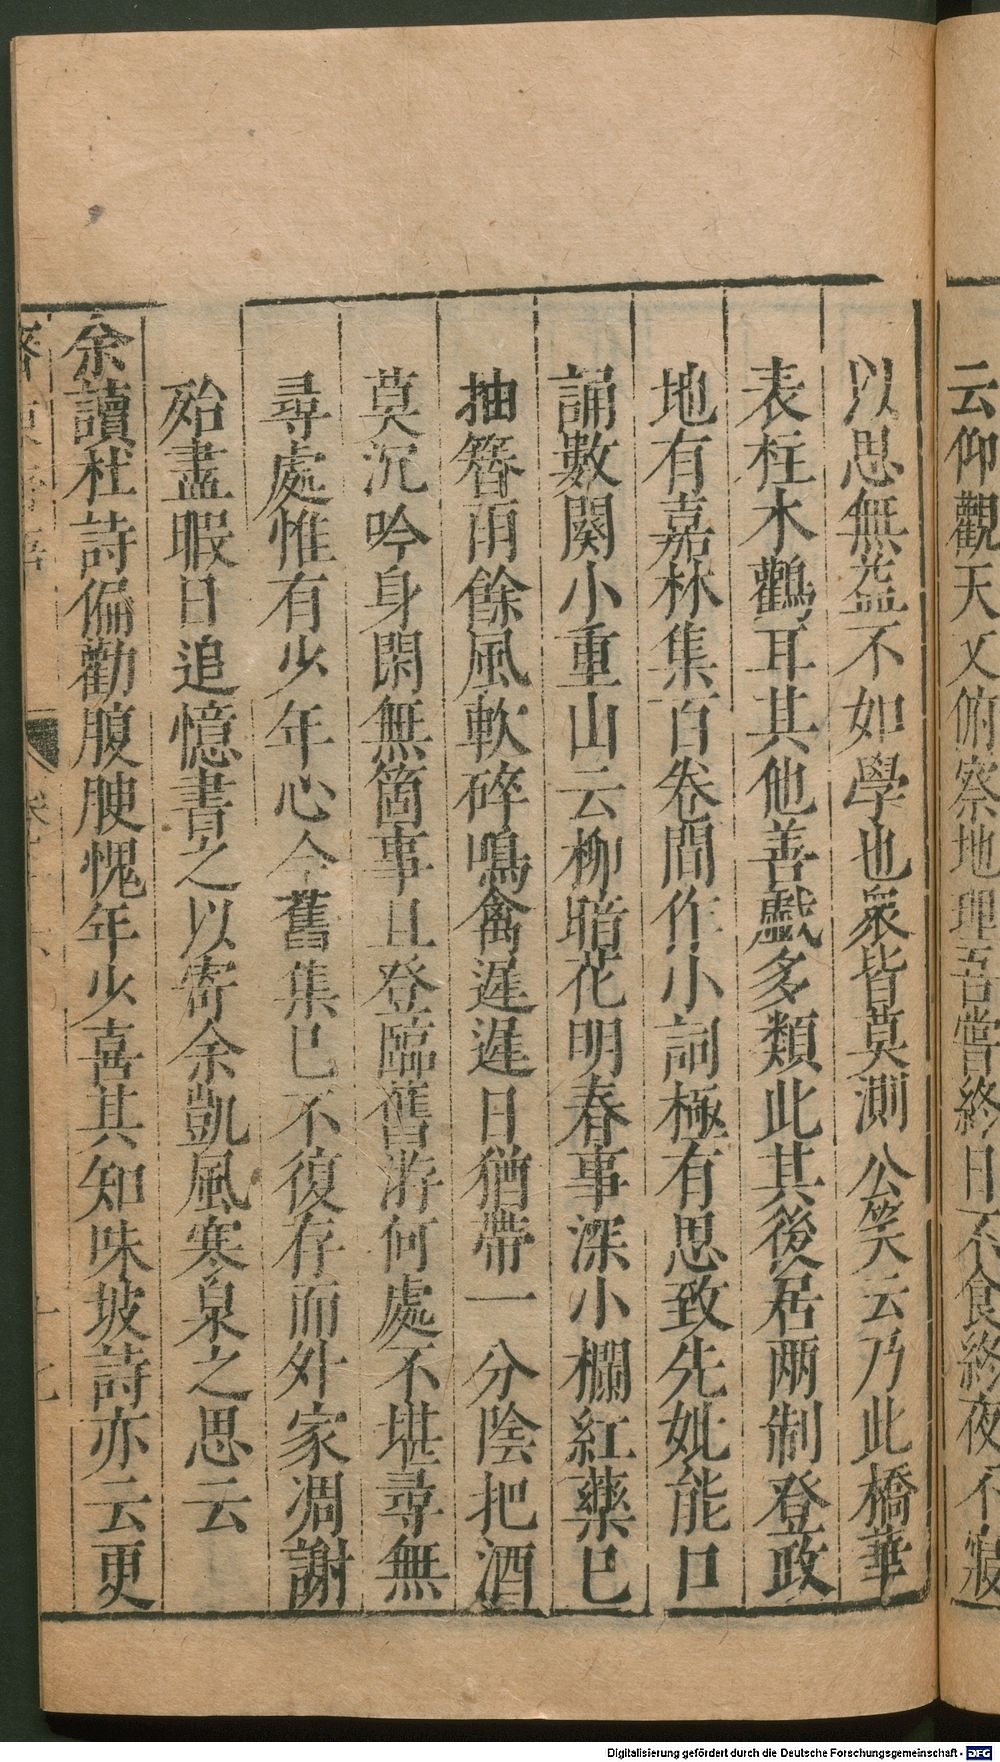 云仰觀天文俯察地理吾嘗終日不食終夜不寢
以思無益不如學也衆皆莫測公笑云乃此橋華
表柱木鸛耳其他善戲多類此其後居两制登政
地有嘉林集百卷間作小詞極有思致先妣能口
誦數闋小重山云柳暗花明春事深小欄紅藥已
抽簪雨餘風軟碎鳴禽遲遲日猶帶一分陰把酒
莫沉吟身閑無箇事且登臨舊游何處不堪尋無
尋處惟有少年心今舊集已不復存而外家凋謝
殆盡暇日追憶書之以寄余凱風寒泉之思云
余讀杜詩偏勸腹腴愧年少喜其知味坡詩亦云更
齊東野語 卷十六 十七
Digitalisierung gefördert durch die Deutsche Forschungsgemeinschaft - DFG